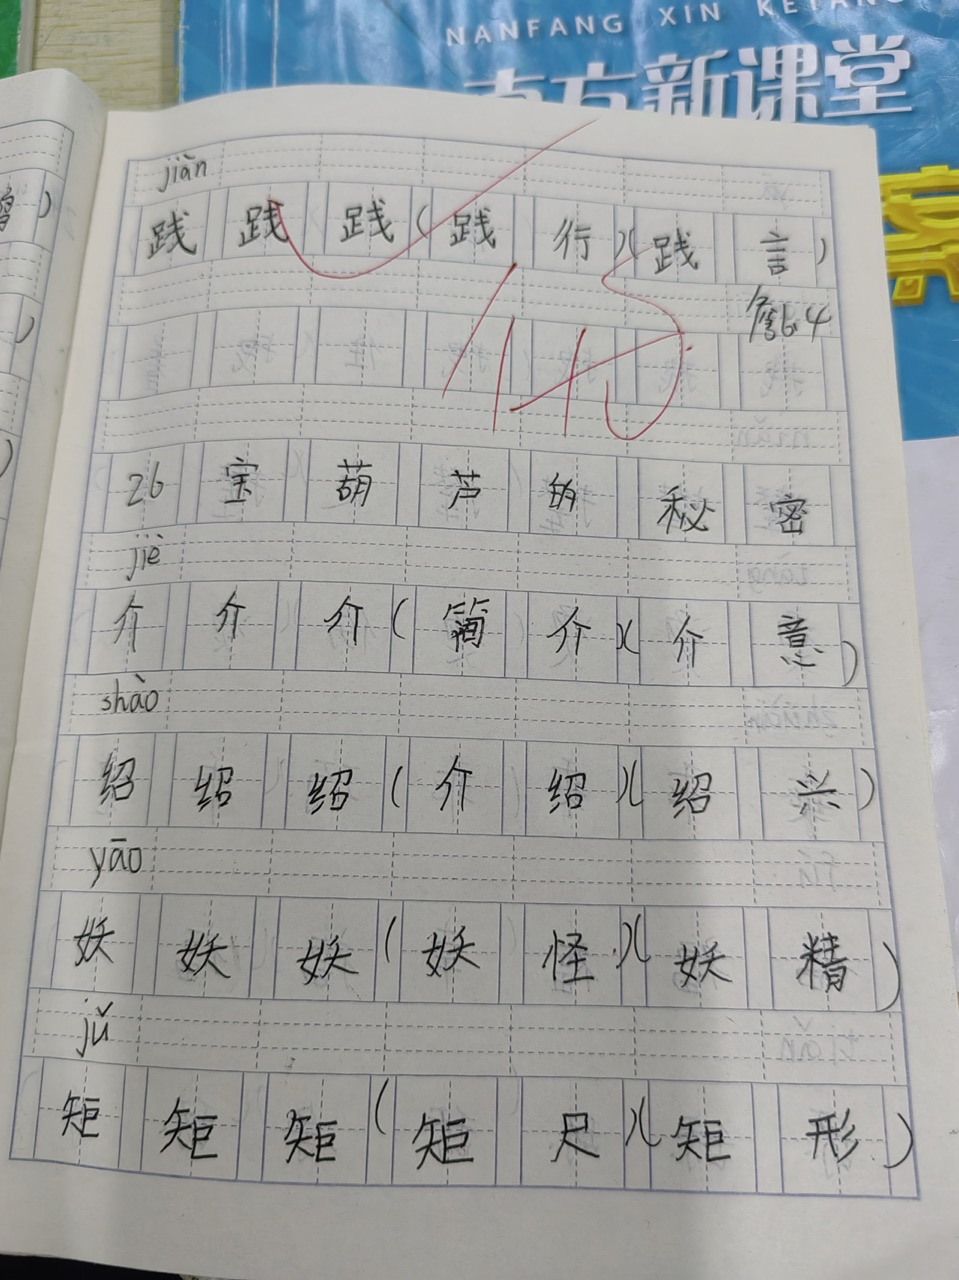 NANFANG XIN KETANG
南方新课堂
案
jiàn
践 践 践 ( 践 行 ) ( 践 言 )
6.4
26 宝 葫 芦 的 秘 密
jiè
介 介 介 ( 简 介 ) ( 介 意 )
shào
绍 绍 绍 ( 介 绍 ) ( 绍 兴 )
yāo
妖 妖 妖 ( 妖 怪 ) ( 妖 精 )
jǔ
矩 矩 矩 ( 矩 尺 ) ( 矩 形 )